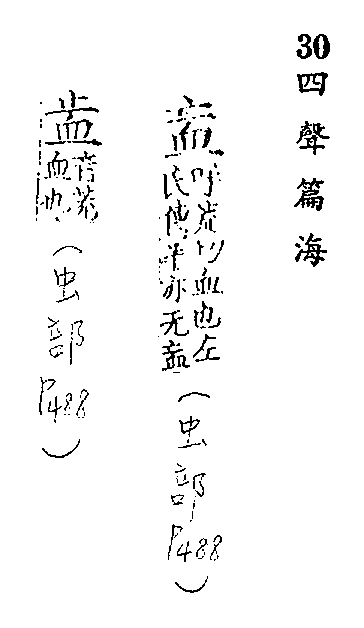 30 四聲篇海
衁
呼荒切血也左
氏傳羊亦无衁
(虫部P488)
音荒
血也
(虫部P488)